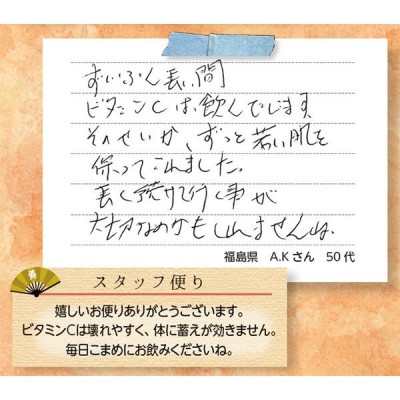 ずいぶん長い間
ビタミンCは飲んでいます
そのせいか、ずっと若い肌を
保ってこれました。
長く続けて行く事が
大切なのかもしれませんね。
福島県 A.Kさん 50代
スタッフ便り
嬉しいお便りありがとうございます。
ビタミンCは壊れやすく、体に蓄えが効きません。
毎日こまめにお飲みくださいね。